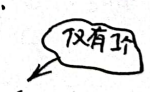 仅有1个